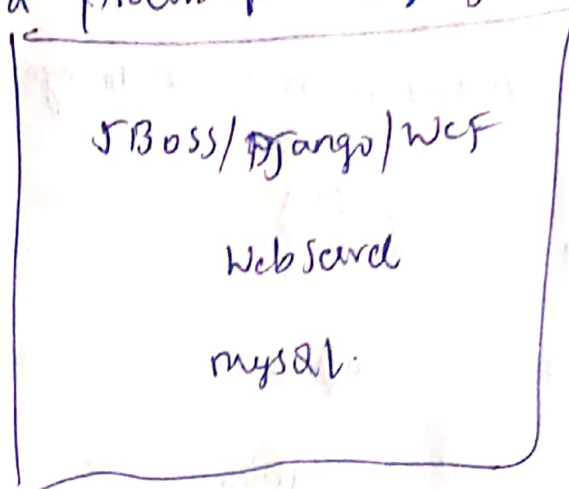 a
JBoss/Django/WCF
Web Server
MySQL.